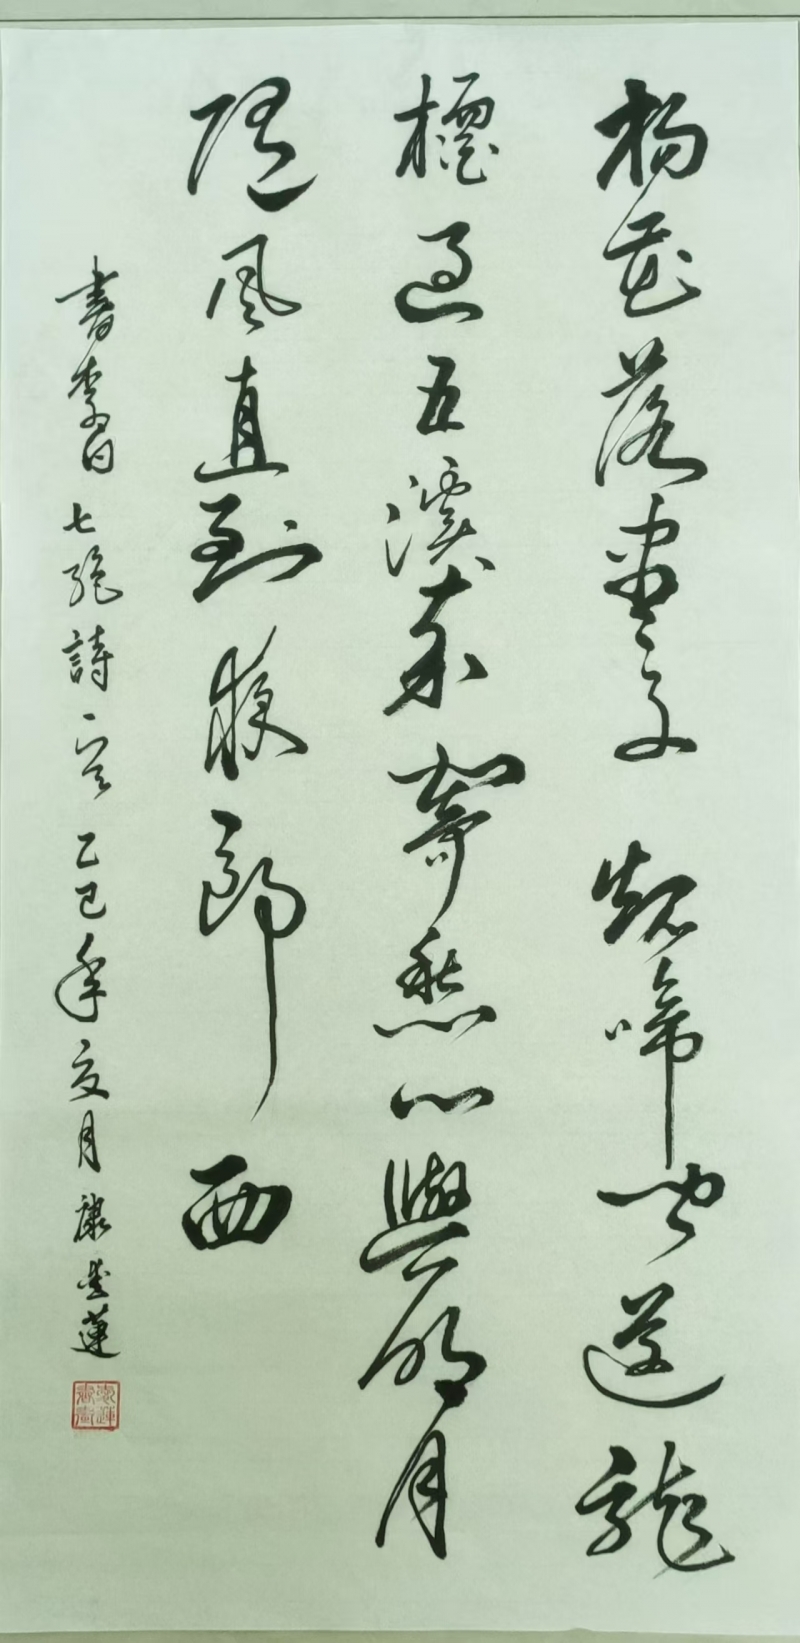 楊花落盡子規啼聞道龍
標過五溪我寄愁心與明月
隨風直到夜郎西
書李白七絕詩一首乙巳年夏月康愛蓮